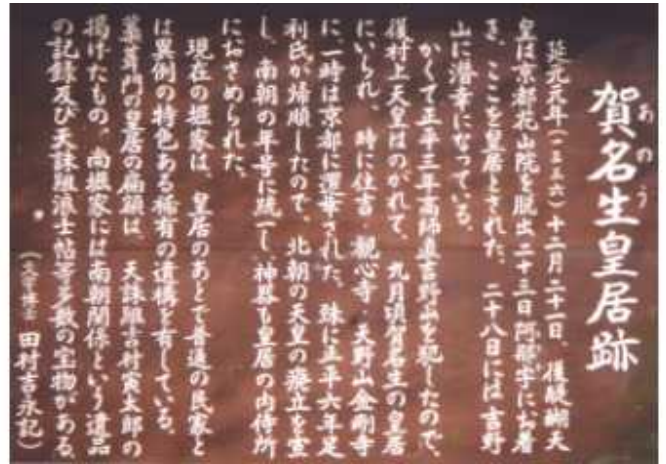 賀名生皇居跡
あのう
延元元年(一三三六)十二月二十一日、後醍醐天
皇は京都花山院を脱出二十三日阿那宇にお着
き、ここを皇居とされた。二十八日には吉野
山に潜幸になっている。
かくて正平三年高師直吉野山を犯したので、
後村上天皇はのがれて、九月頃賀名生の皇居
にいられ、時に住吉・観心寺・天野山金剛寺
に一時は京都に還幸された。殊に正平六年足
利氏が帰順したので、北朝の天皇の廃立を宣
し、南朝の年号に統一し、神器も皇居の内侍所
におさめられた。
現在の堀家は、皇居のあとで普通の民家と
は異例の特色ある稀有の遺構を有している。
藁葺門の皇居の扁額は、天誅組吉村寅太郎の
掲げたもの。尚堀家には南朝関係という遺品
の記録及び天誅組志士帖等多数の宝物がある。
(文学博士 田村吉永記)